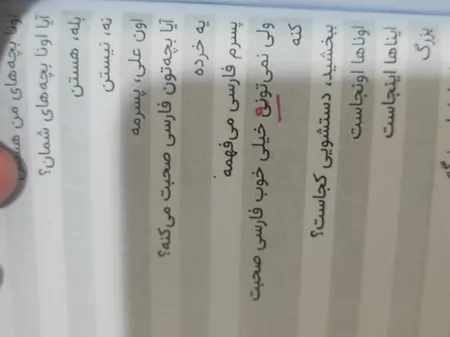 اونا بچه‌های من
آیا اونا بچه‌های شمان؟
بله، هستن
نه، نیستن
اون علی، پسرمه
آیا بچه‌تون فارسی صحبت می‌کنه؟
یه خرده
پسرم فارسی می‌فهمه
ولی نمی‌تونه خیلی خوب فارسی صحبت
کنه
ببخشید، دستشویی کجاست؟
اوناها اونجاست
ایناها اینجاست
بزرگ